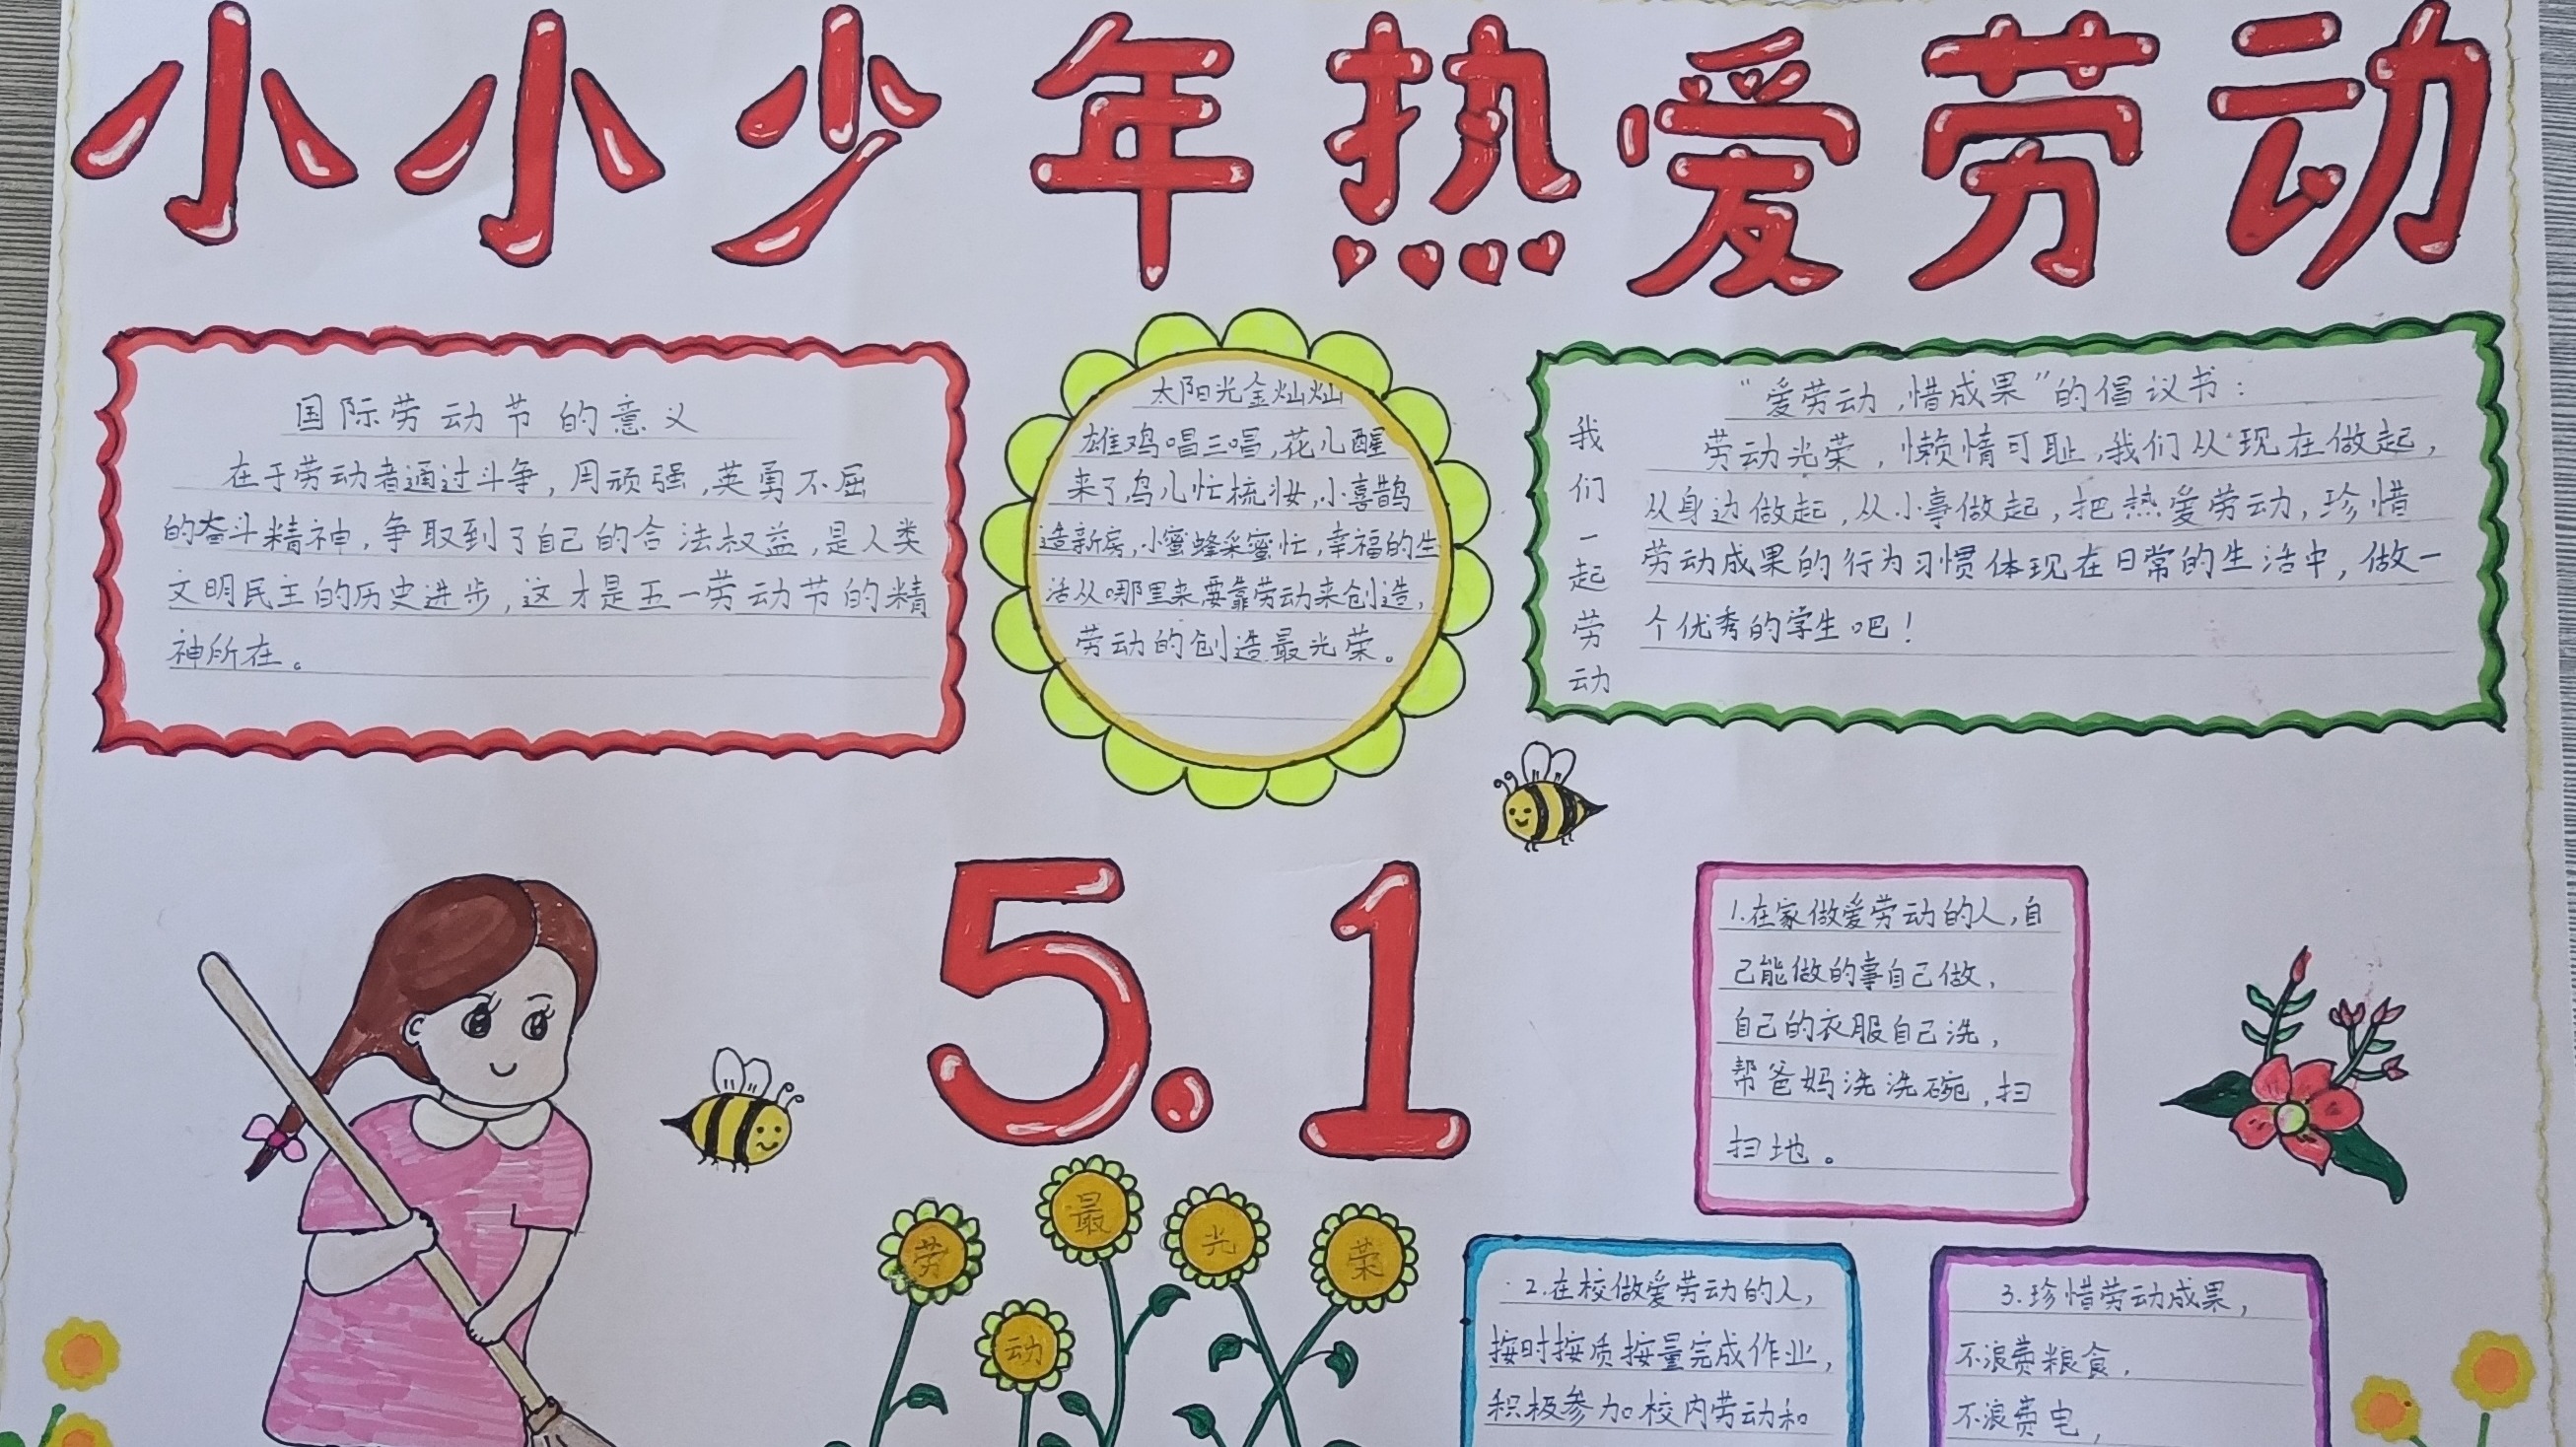 小小少年热爱劳动
国际劳动节的意义
在于劳动者通过斗争,用顽强,英勇不屈
的奋斗精神,争取到了自己的合法权益,是人类
文明民主的历史进步,这才是五一劳动节的精
神所在。
太阳光金灿灿
雄鸡唱三唱,花儿醒
来了,鸟儿忙梳妆,小喜鹊
造新房,小蜜蜂采蜜忙,幸福的生
活从哪里来要靠劳动来创造,
劳动的创造最光荣。
我们一起劳动
“爱劳动,惜成果”的倡议书:
劳动光荣,懒惰可耻,我们从现在做起,
从身边做起,从小事做起,把热爱劳动,珍惜
劳动成果的行为习惯体现在日常的生活中,做一
个优秀的学生吧!
5.1
劳动最光荣
1.在家做爱劳动的人,自
己能做的事自己做,
自己的衣服自己洗,
帮爸妈洗洗碗,扫
扫地。
2.在校做爱劳动的人,
按时按质按量完成作业,
积极参加校内劳动和
3.珍惜劳动成果,
不浪费粮食,
不浪费电,